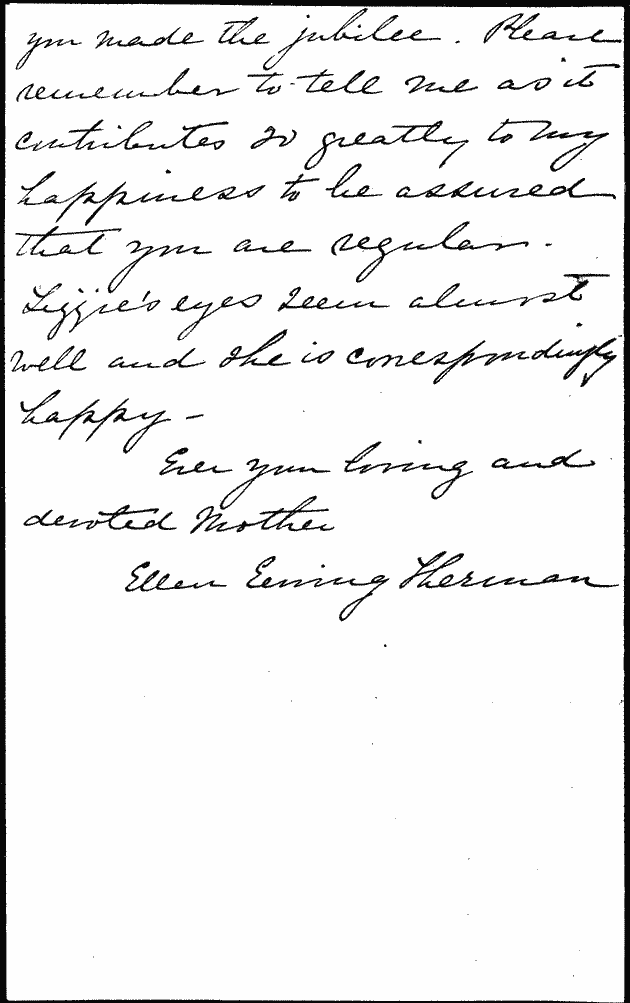 you made the jubilee. Please
remember to tell me as it
contributes so greatly to my
happiness to be assured
that you are regular.
Lizzie's eyes seem almost
well and she is correspondingly
happy –
Ever your loving and
devoted Mother
Ellen Ewing Sherman